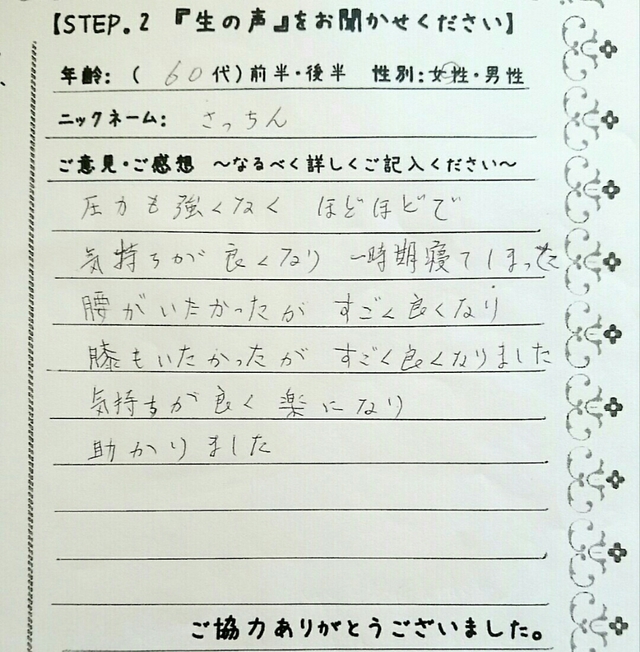 【STEP.2 『生の声』をお聞かせください】
年齢：( 60代)前半・後半 性別：女性・男性
ニックネーム： さっちん
ご意見・ご感想 ～なるべく詳しくご記入ください～
圧力も強くなく ほどほどで
気持ちが良くなり 一時期寝てしまった
腰がいたかったが すごく良くなり
膝もいたかったが すごく良くなりました
気持ちが良く楽になり
助かりました
ご協力ありがとうございました。